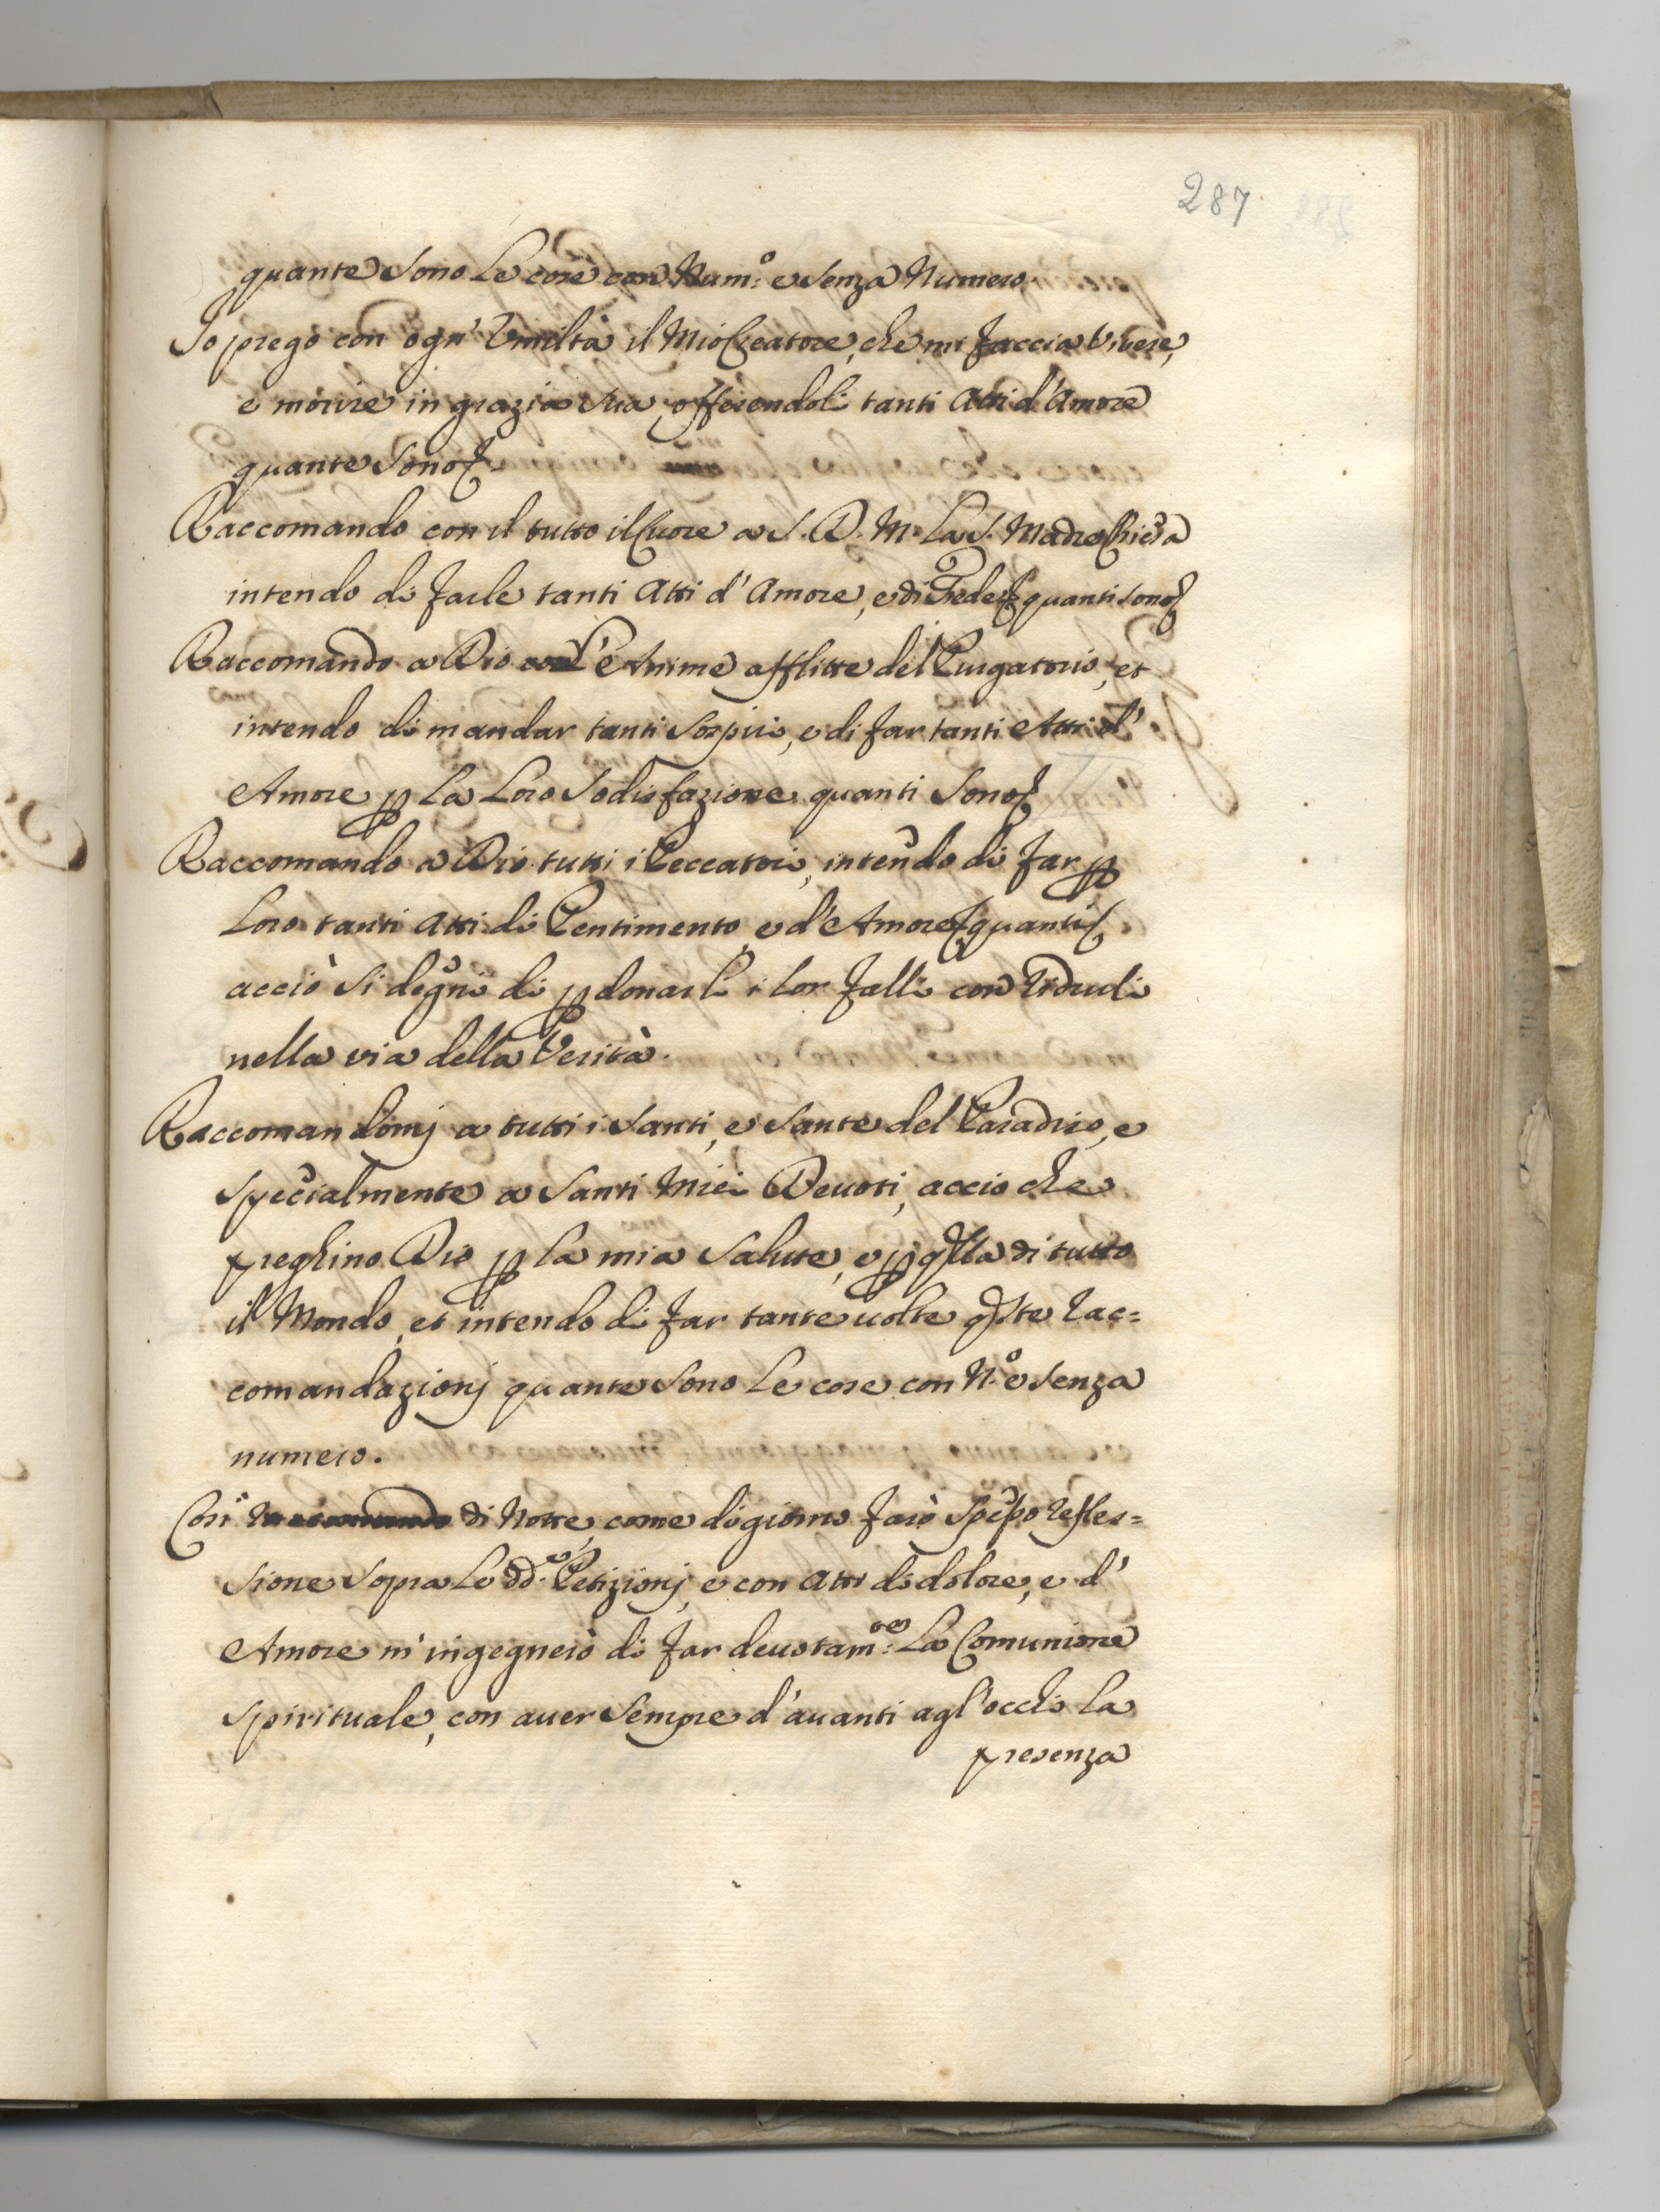 287
quante sono le cose con Num:o e senza Numero.
Io prego con ogn' Umiltà il Mio Creatore, che mi faccia vivere,
e morire in grazia sua, offerendoli tanti Atti d'Amore
quante sono &
Raccomando con il tutto il Cuore a S. D. M. La S. Madre Chiesa
intendo di farle tanti Atti d'Amore, e di Fede & quanti sono &
Raccomando a Dio l'Anime afflitte del Purgatorio, et
intendo di mandar tanti sospiri, e di far tanti Atti d'
Amore p la Loro Sodisfazione quanti sono &
Raccomando a Dio tutti i Peccatori, intendo di far p
Loro tanti Atti di Pentimento, e d'Amore & quanti &
acciò si degni di pdonarli i lor falli con ridurli
nella via della Verità.
Raccomandomj a tutti i Santi, e Sante del Paradiso, e
specialmente a Santi Miei Devoti, accio che
preghino Dio p la mia Salute, e p qlla di tutto
il Mondo, et intendo di far tante uolte qste rac=
comandazionj quante sono le cose con N.o e senza
numero.
Così di Notte, come di giorno farò spesso refles=
sione sopra le dd.e Petizionj, e con Atti di dolore, e d'
Amore m'ingegnerò di far deuotam:te La Comunione
spirituale, con auer sempre d'auanti agl'occhi la
presenza